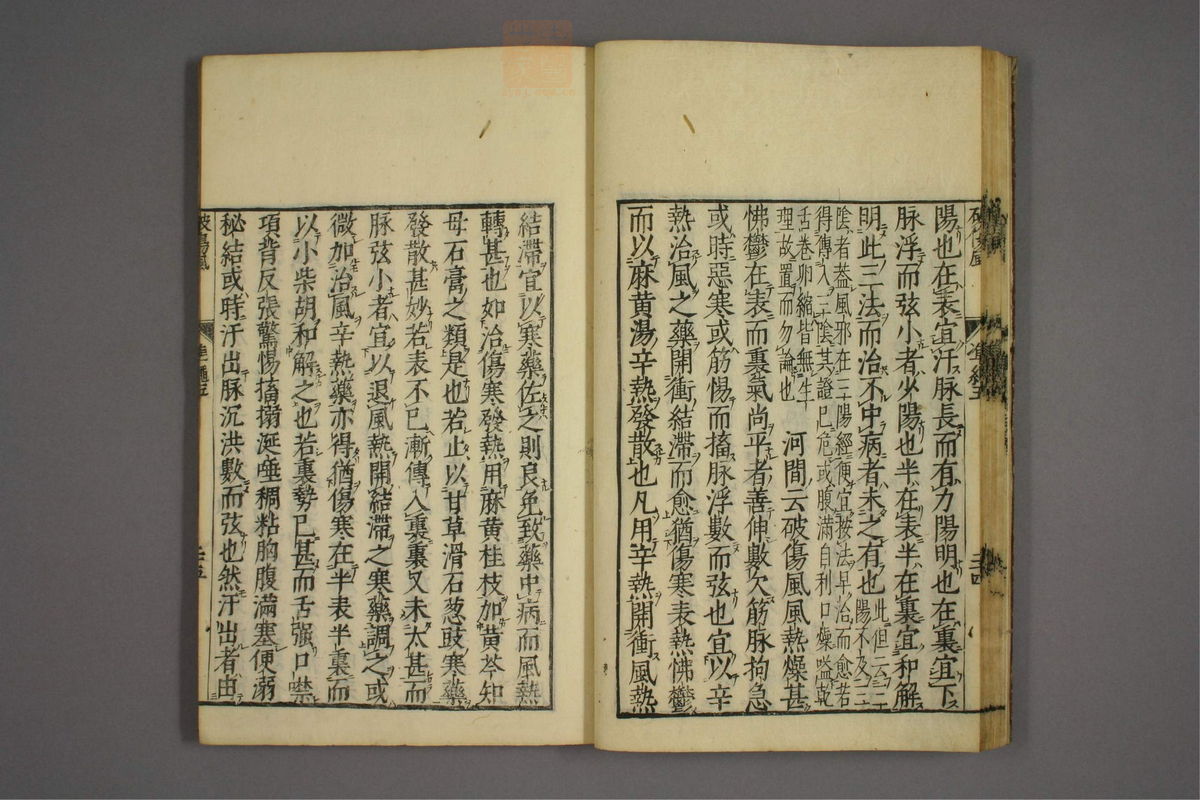 陽也在表宜汗脉長而有力陽明也在裏宜下
脉浮而弦小者少陽也半在表半在裏宜和解
明此三法而治不中病者未之有也此但云三
陽不及三
陰者葢風邪在三陽經便宜按法早治而愈若
得傳入三陰其證已危或腹滿自利口燥嗌乾
舌卷卵縮皆無生
理故置而勿論也
河間云破傷風風熱燥甚
怫鬱在表而裏氣尚平者善伸數欠筋脉拘急
或時惡寒或筋惕而搐脉浮數而弦也宜以辛
熱治風之藥開衝結滯而愈猶傷寒表熱怫鬱
而以麻黄湯辛熱發散也凡用辛熱開衝風熱
結滯宜以寒藥佐之則良免致藥中病而風熱
轉甚也如治傷寒發熱用麻黄桂枝加黄芩知
母石膏之類是也若止以甘草滑石葱豉寒藥
發散甚妙若表不已漸傳入裏裏又未太甚而
脉弦小者宜以退風熱開結滯之寒藥調之或
微加治風辛熱藥亦得猶傷寒在半表半裏而
以小柴胡和解之也若裏勢已甚而舌强口噤
項背反張驚惕搐搦涎唾稠粘胸腹滿塞便溺
秘結或時汗出脉沉洪數而弦也然汗出者由
破傷風